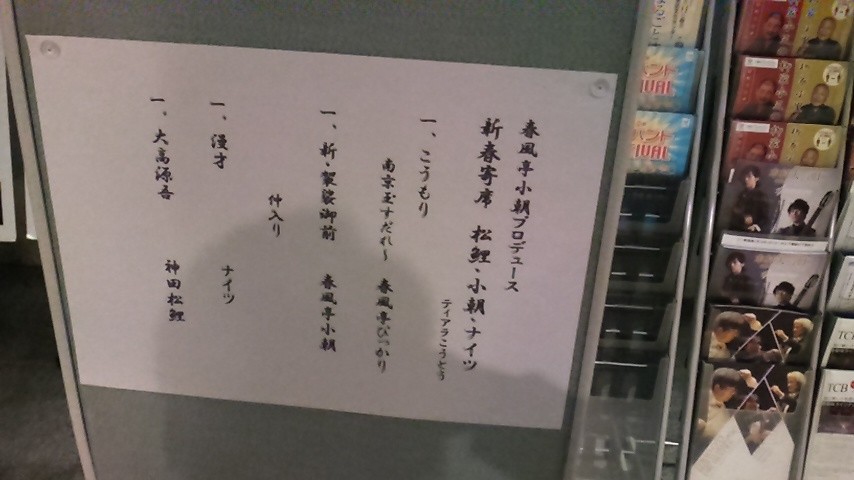 春風亭小朝プロデュース
新春寄席 松鯉・小朝・ナイツ
ティアラこうとう
一、こうもり
南京玉すだれ〜 春風亭ぴっかり
一、新・袈裟御前 春風亭小朝
仲入り
一、漫才 ナイツ
一、大高源吾 神田松鯉
TCB